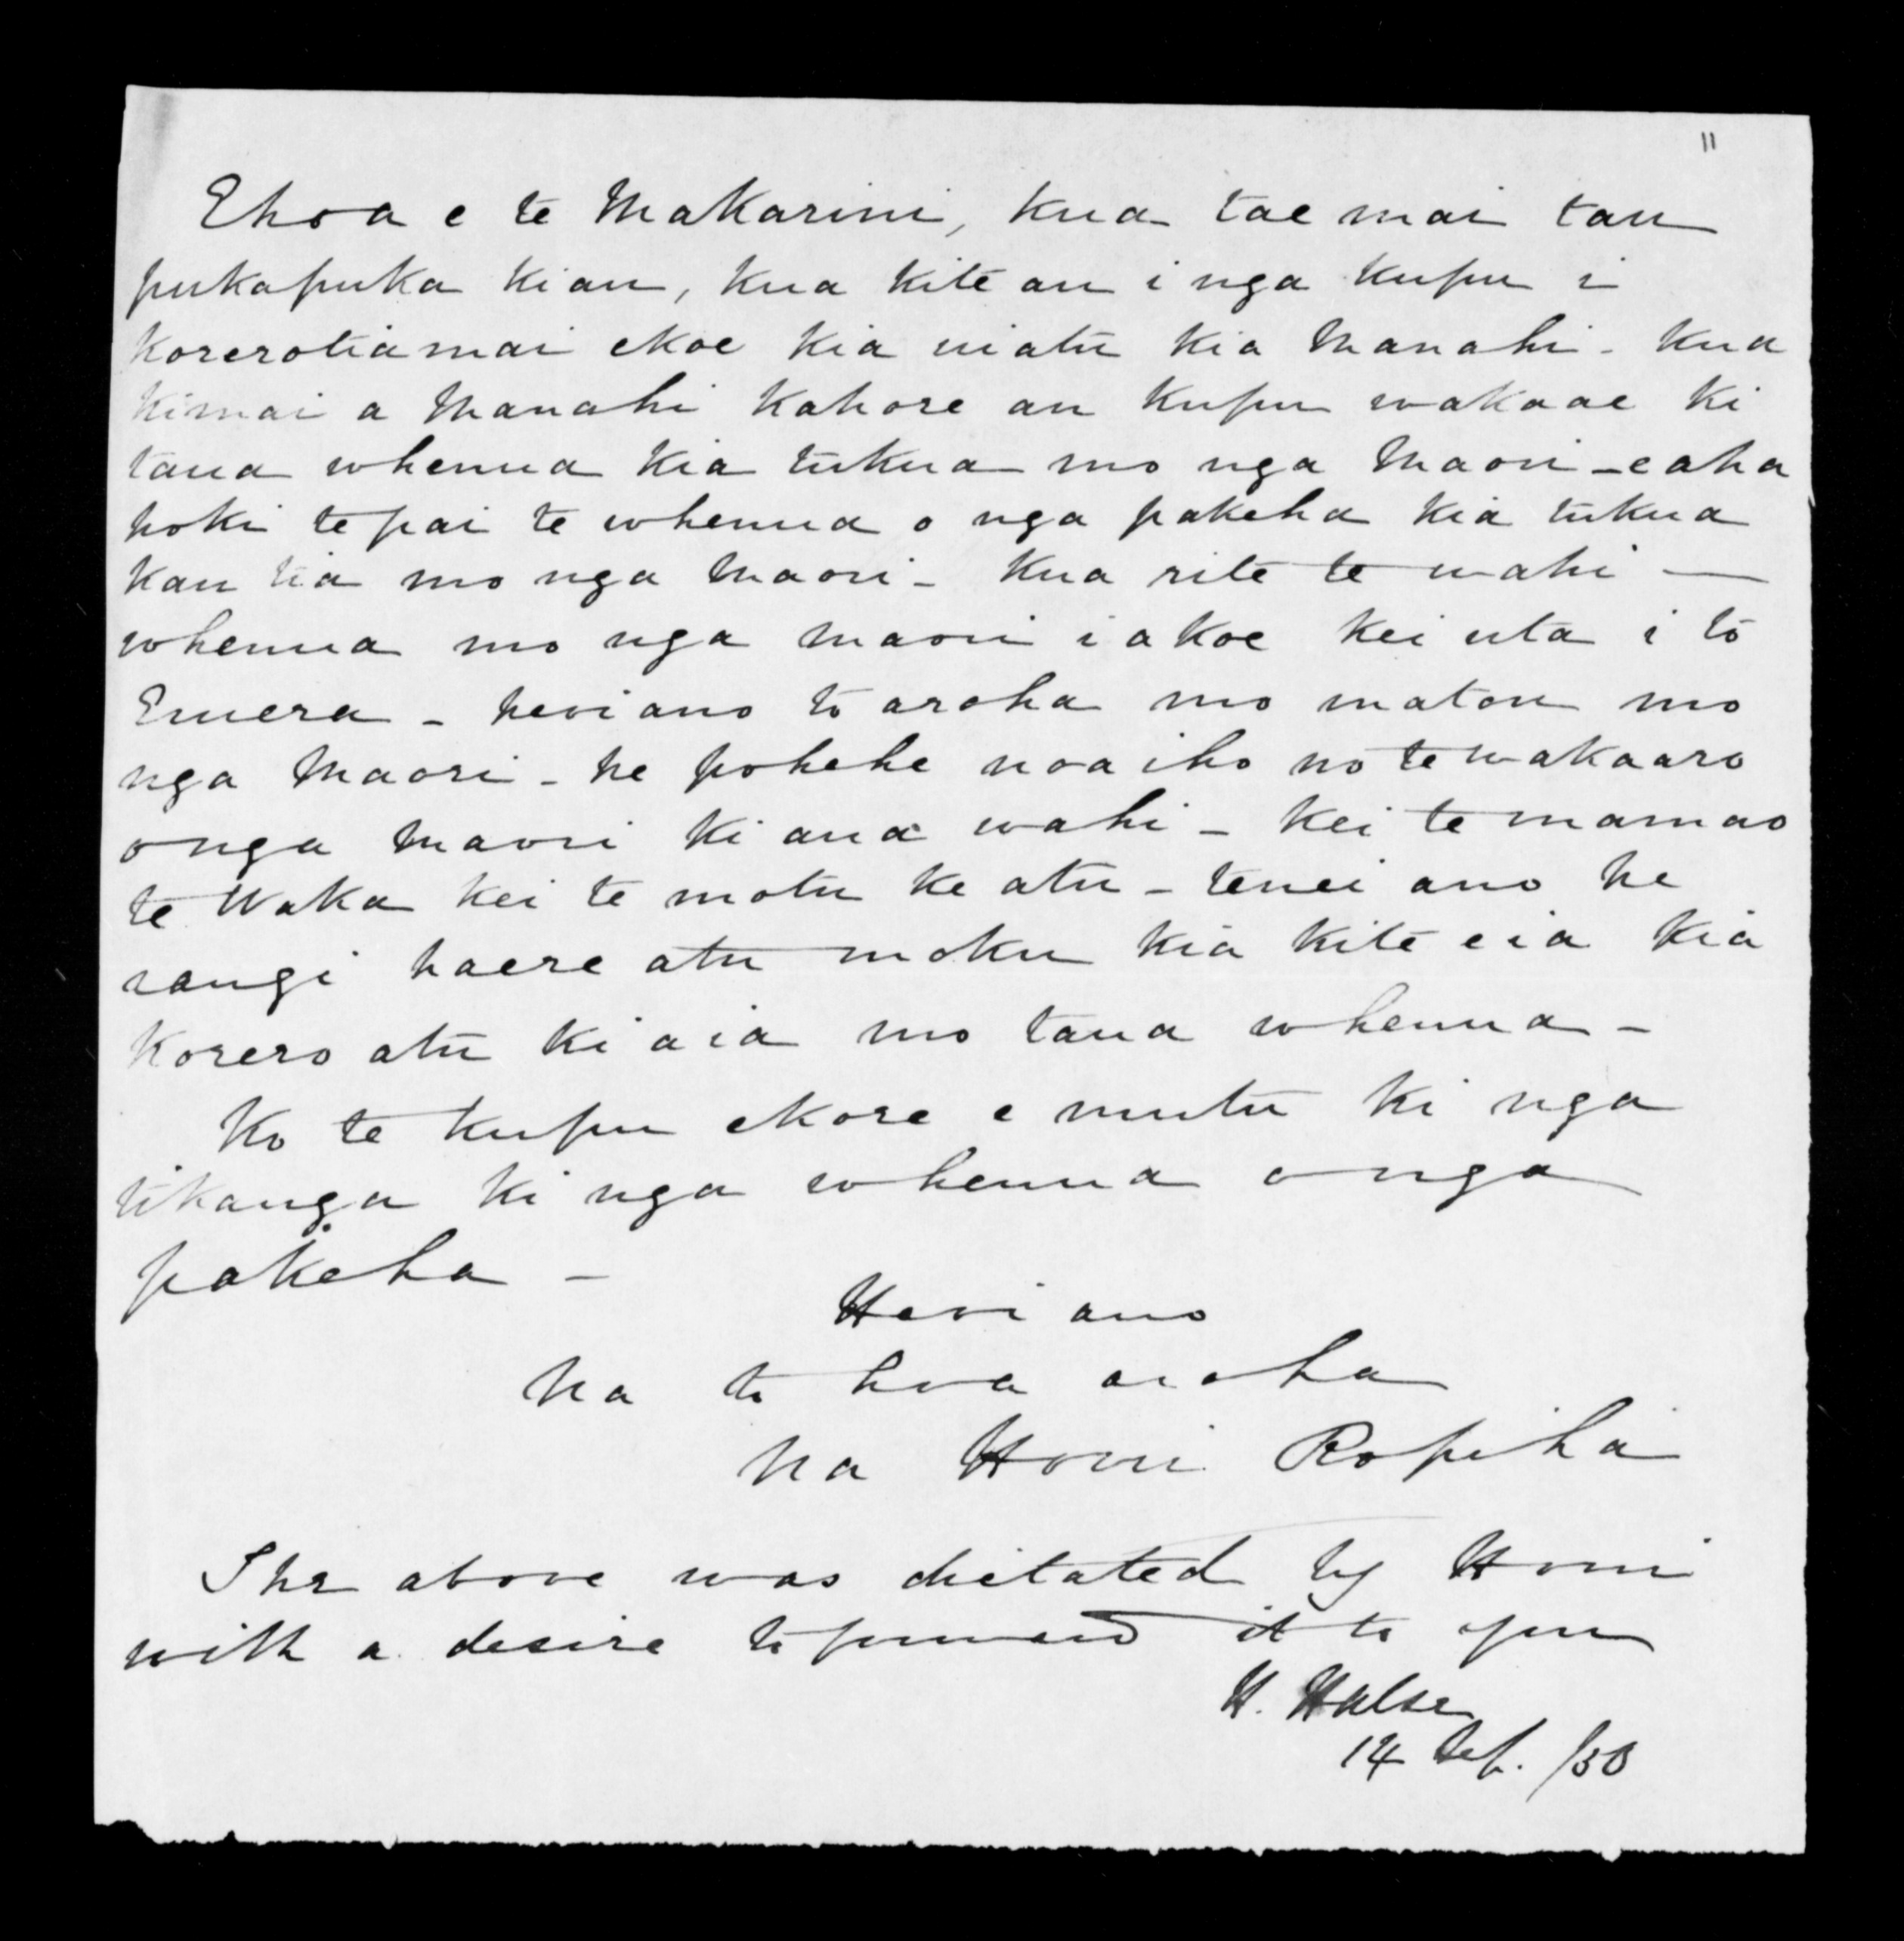 11
Ehoa e te Makarini, kua tae mai tau
pukapuka kiau, kua kite au i nga kupu i
korerotiamai ekoe kia uiatu kia Manahi - kua
kimai a Manahi kahore au kupu wakaae ki
taua whenua kia tukua mo nga Maori - eaha
hoki te pai te whenua o nga pakeha kia tukua
kautia mo nga Maori - kua rite te wahi —
whenua mo nga maori i a koe kei uta i to
Emera - heoiano to aroha mo matou mo
nga Maori - he pohehe noa iho no te wakaaro
onga Maori ki ana wahi - kei te mamao
te Waka kei te motu ke atu - tenei ano he
rangi haere atu moku kia kite eia kia
korero atu ki aia mo taua whenua -
Ko te kupu ekore e mutu ki nga
tikanga ki nga whenua onga
pakeha -
Heoi ano
Na to hoa aroha
Na Honi Ropiha
The above was dictated by Honi
with a desire to forward it to you
H. Halse
14 Sep. /50